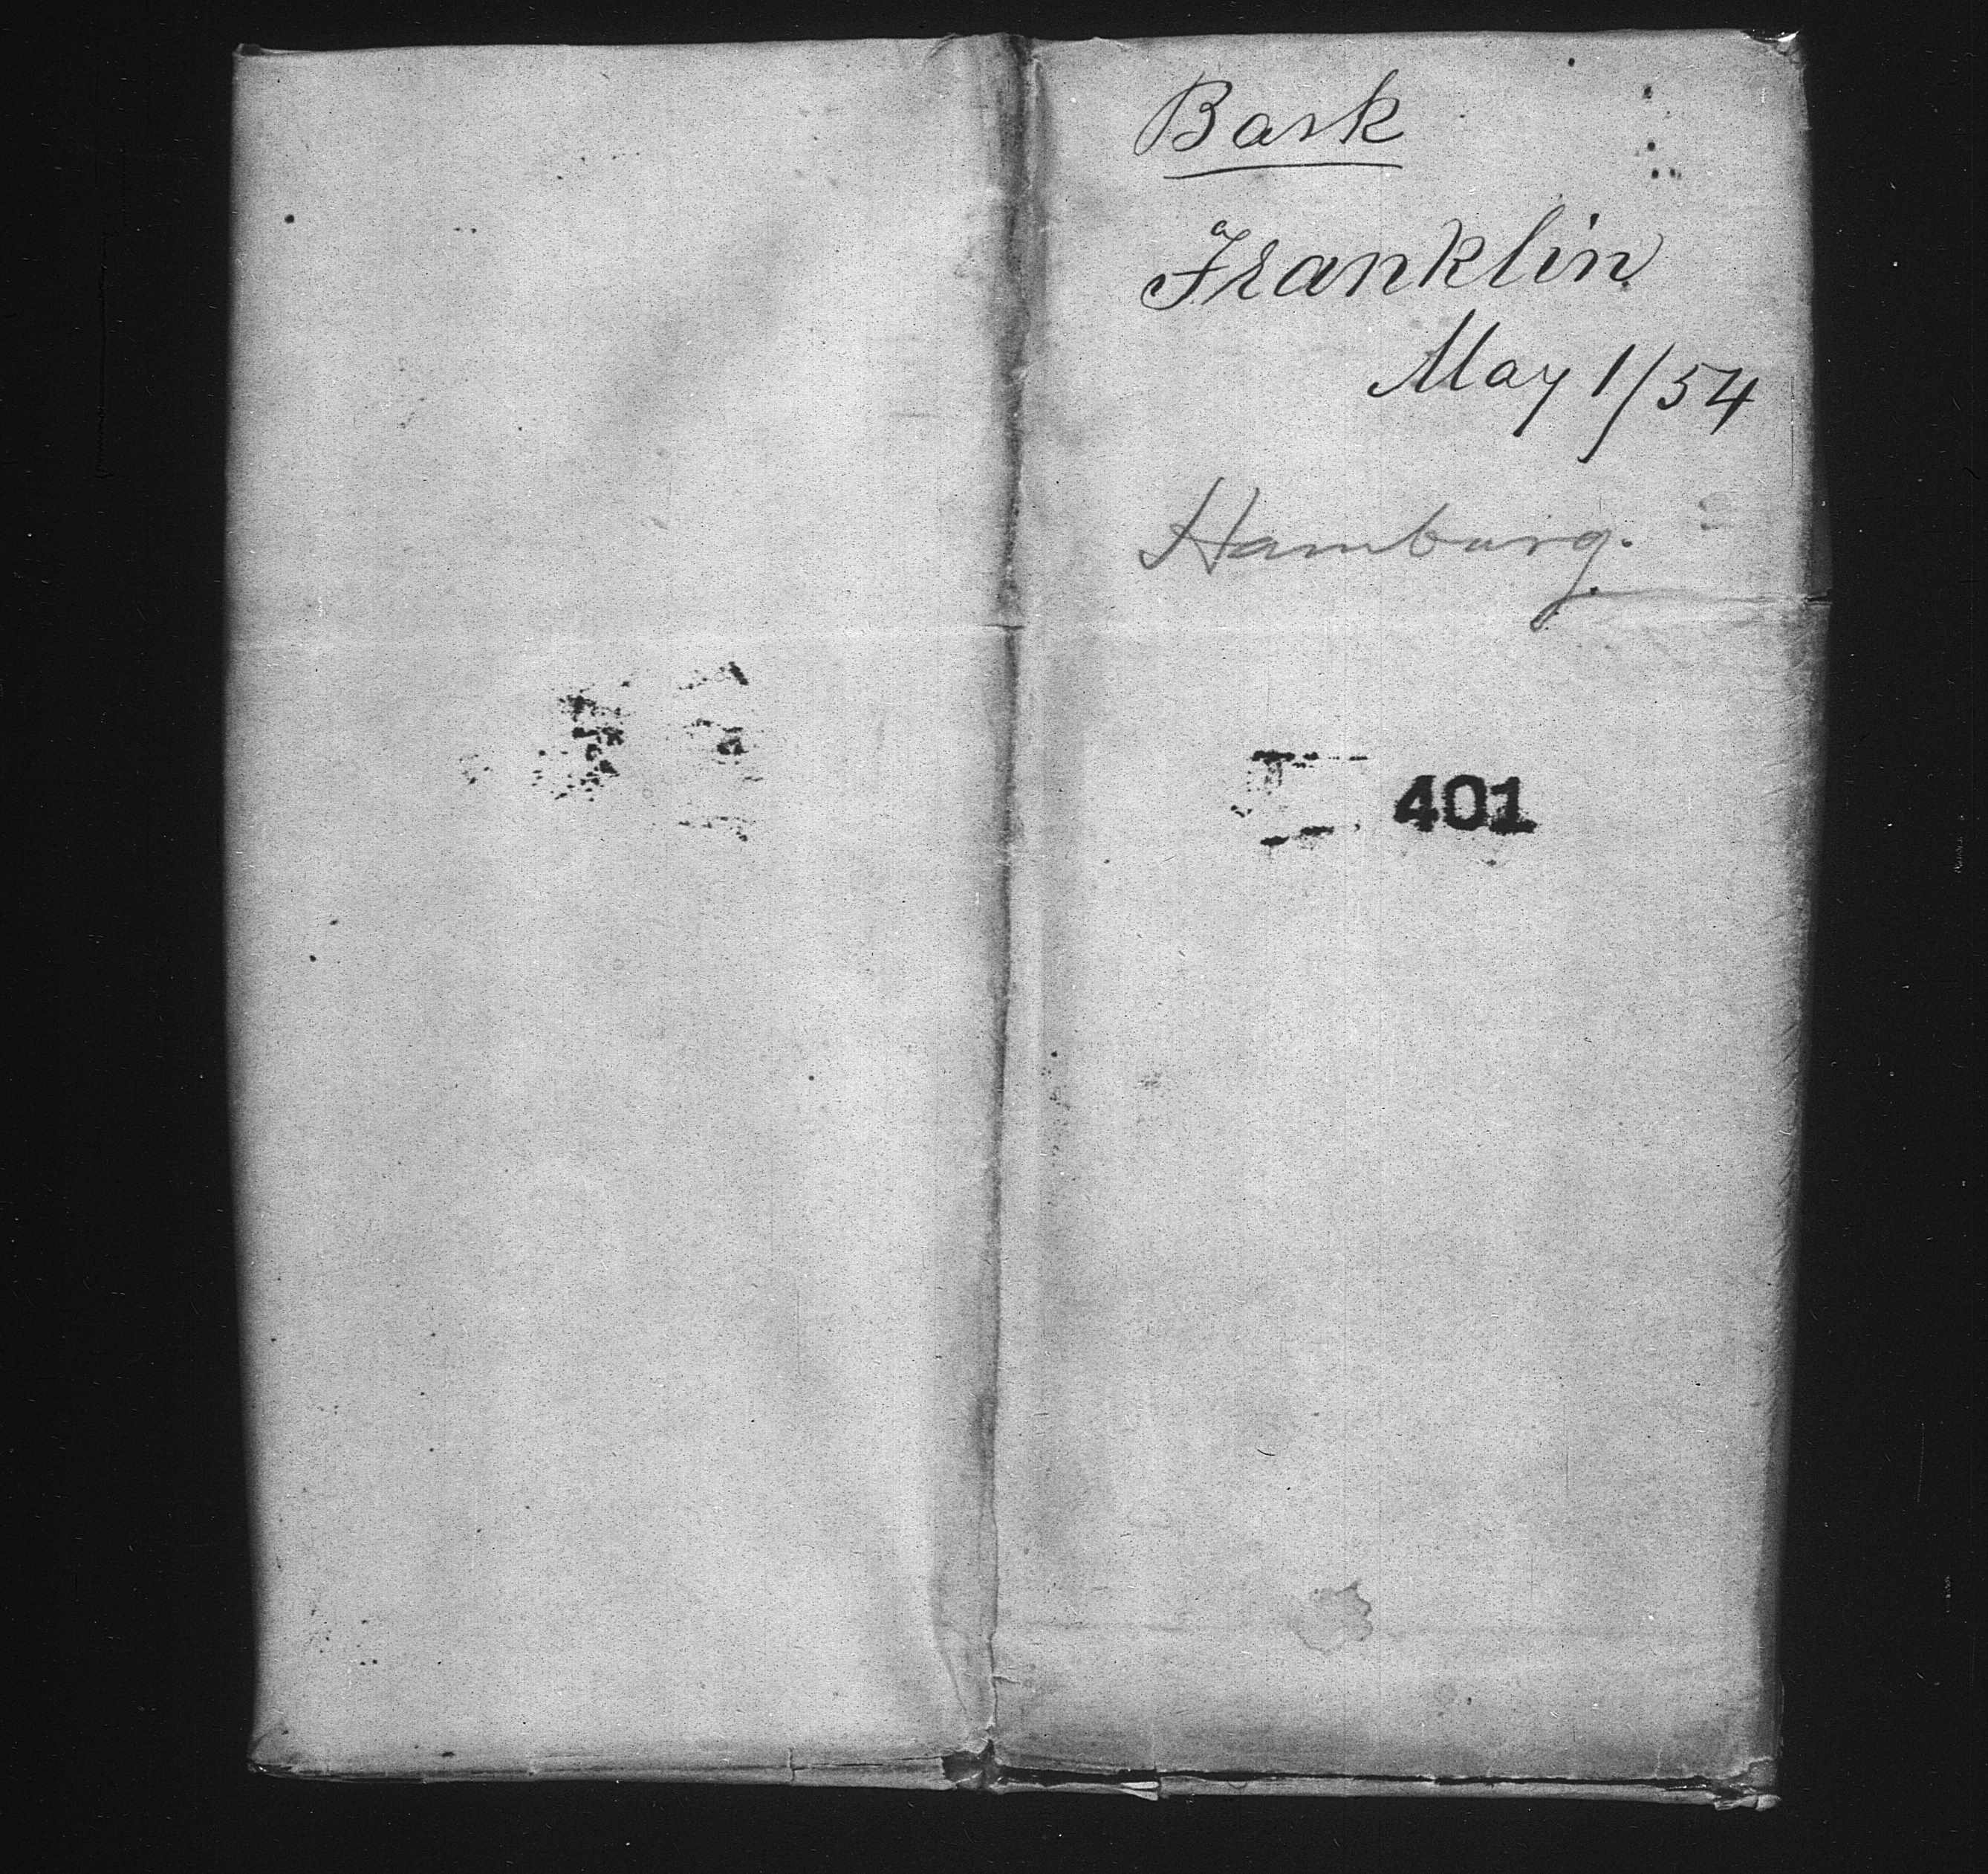 Bark
Franklin
May 1/54
Hamburg.
401